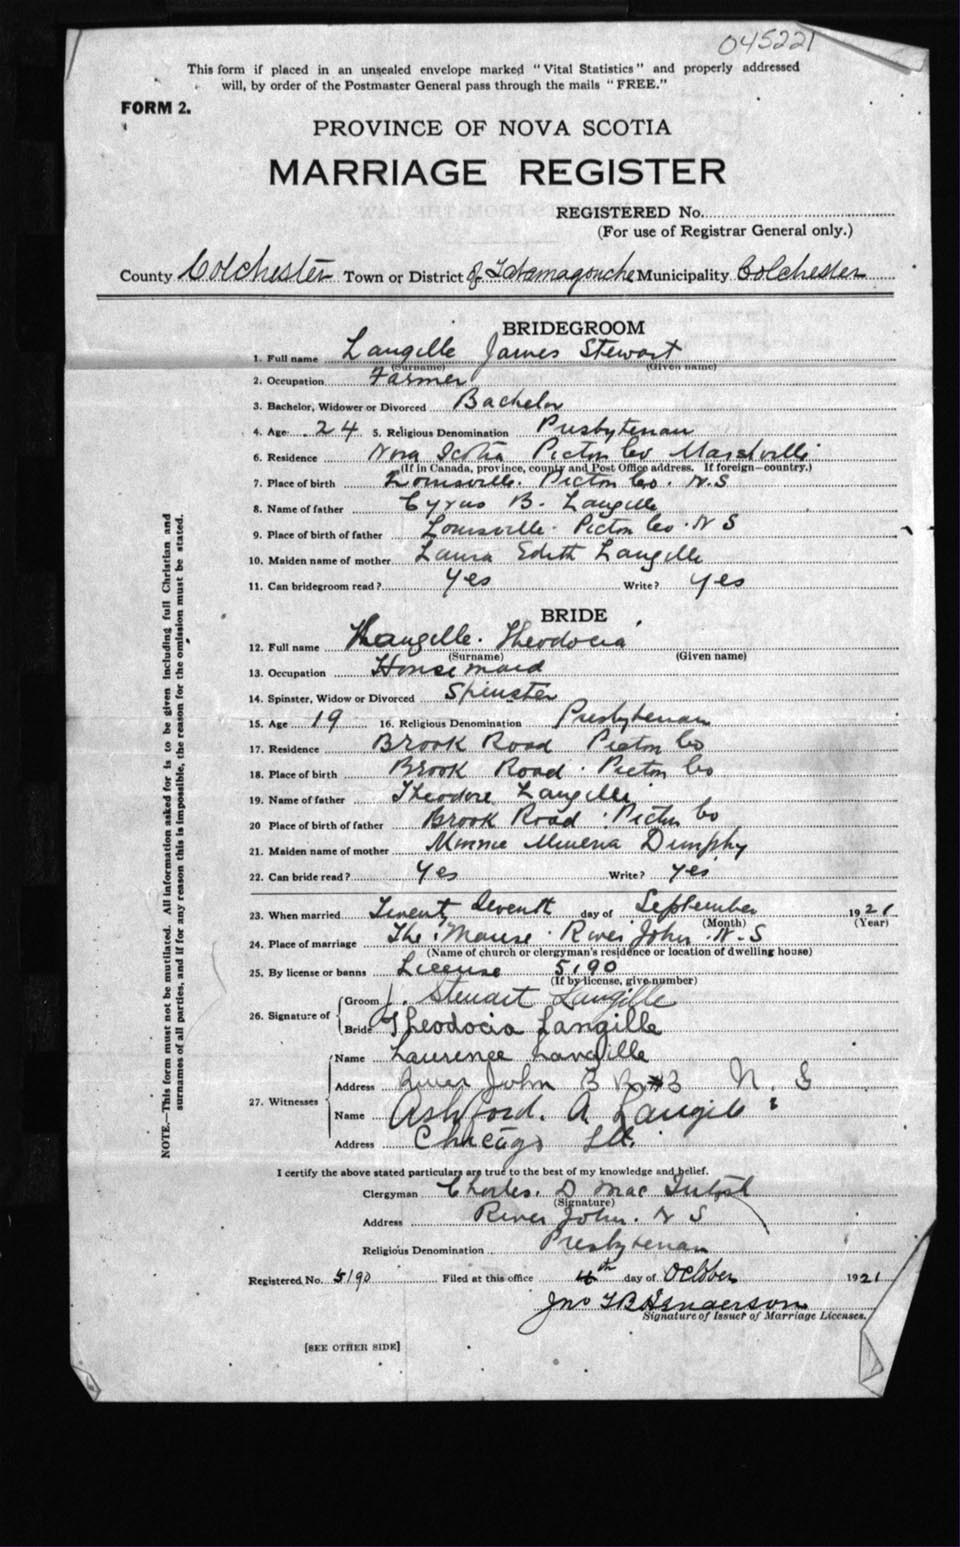 045221
This form if placed in an unsealed envelope marked "Vital Statistics" and properly addressed
will, by order of the Postmaster General pass through the mails "FREE."
FORM 2.
PROVINCE OF NOVA SCOTIA
MARRIAGE REGISTER
REGISTERED No.
(For use of Registrar General only.)
County Colchester Town or District of Tatamagouche Municipality Colchester
BRIDEGROOM
1. Full name Langille James Stewart
(Surname) (Given name)
2. Occupation Farmer
3. Bachelor, Widower or Divorced Bachelor
4. Age 24 5. Religious Denomination Presbyterian
6. Residence Nova Scotia Pictou Co Marshville
(If in Canada, province, county and Post Office address. If foreign—country.)
7. Place of birth Louisville. Pictou Co. N.S
8. Name of father Cyrus B. Langille
9. Place of birth of father Louisville. Pictou Co. N S
10. Maiden name of mother Laura Edith Langille
11. Can bridegroom read? Yes Write? Yes
BRIDE
12. Full name Langille. Theodocia
(Surname) (Given name)
13. Occupation Housemaid
14. Spinster, Widow or Divorced Spinster
15. Age 19 16. Religious Denomination Presbyterian
17. Residence Brook Road Pictou Co
18. Place of birth Brook Road. Pictou Co
19. Name of father Theodore Langille
20 Place of birth of father Brook Road. Pictou Co
21. Maiden name of mother Minnie Minerva Dumphy
22. Can bride read? Yes Write? Yes
23. When married Twenty Seventh day of September 1921
(Month) (Year)
24. Place of marriage The Manse. River John. N.S
(Name of church or clergyman's residence or location of dwelling house)
25. By license or banns License 5190
(If by license, give number)
26. Signature of Groom J. Stewart Langille
Bride Theodocia Langille
27. Witnesses Name Laurence Langille
Address River John R R #3 N. S
Name Ashford. A Langille
Address Chicago Ill.
I certify the above stated particulars are true to the best of my knowledge and belief.
Clergyman Charles. D Mac Intosh
(Signature)
Address River John. N S
Religious Denomination Presbyterian
Registered No. 5190 Filed at this office 4th day of October 1921
Jno T B Henderson
Signature of Issuer of Marriage Licenses.
[SEE OTHER SIDE]
NOTE.—This form must not be mutilated. All information asked for is to be given including full Christian and
surnames of all parties, and if for any reason this is impossible, the reason for the omission must be stated.